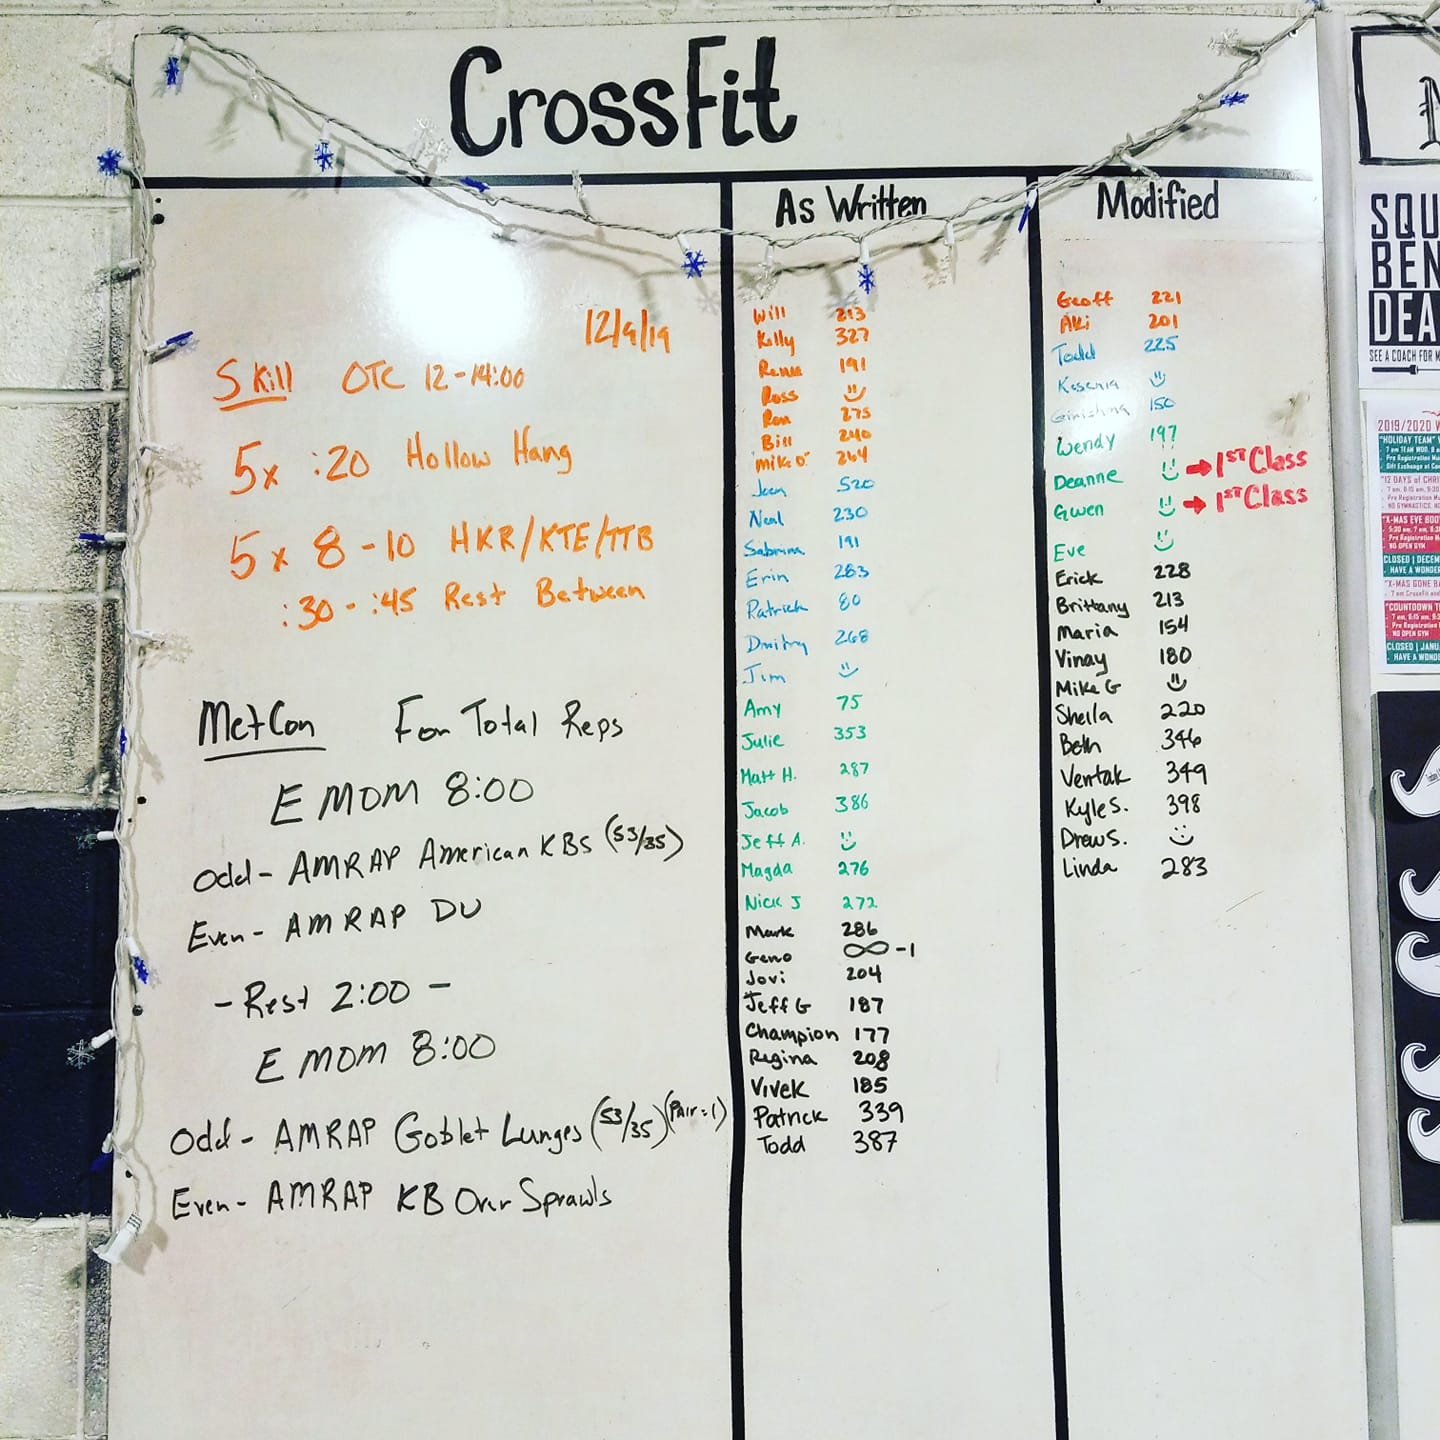 CrossFit
12/9/19
Skill OTC 12-14:00
5x :20 Hollow Hang
5 x 8-10 HKR/KTE/TTB
:30 - :45 Rest Between
MetCon For Total Reps
EMOM 8:00
Odd- AMRAP American KBS (53/35)
Even- AMRAP DU
-Rest 2:00 -
EMOM 8:00
Odd- AMRAP Goblet Lunges (53/35) (Pair=1)
Even- AMRAP KB Over Sprawls
As Written
Will 213
Kelly 327
Renee 191
Ross
Ron 275
Bill 240
Mike O. 264
Jeen 520
Neal 230
Sabrina 191
Erin 283
Patrick 80
Dmitry 268
Jim
Amy 75
Julie 353
Matt H. 287
Jacob 386
Jeff A.
Magda 276
Nick J 272
Mark 286
Geno ∞-1
Jovi 204
Jeff G 187
Champion 177
Regina 208
Vivek 185
Patrick 339
Todd 387
Modified
Geoff 221
Aki 201
Todd 225
Kesenia
150
Wendy 197
Deanne → 1ST Class
Gwen → 1ST Class
Eve
Erick 228
Brittany 213
Maria 154
Vinay 180
Mike G
Sheila 220
Beth 346
Ventak 349
Kyle S. 398
Drew S.
Linda 283
SQU
BEN
DEA
SEE A COACH FOR M
2019/2020 W
"HOLIDAY TEAM"
"12 DAYS of CHRI
"X-MAS EVE BOO
NO OPEN GYM
CLOSED | DECEM
HAVE A WONDE
"X-MAS GONE BA
7 am CrossFit and
"COUNTDOWN T
NO OPEN GYM
CLOSED | JANU
HAVE A WONDE